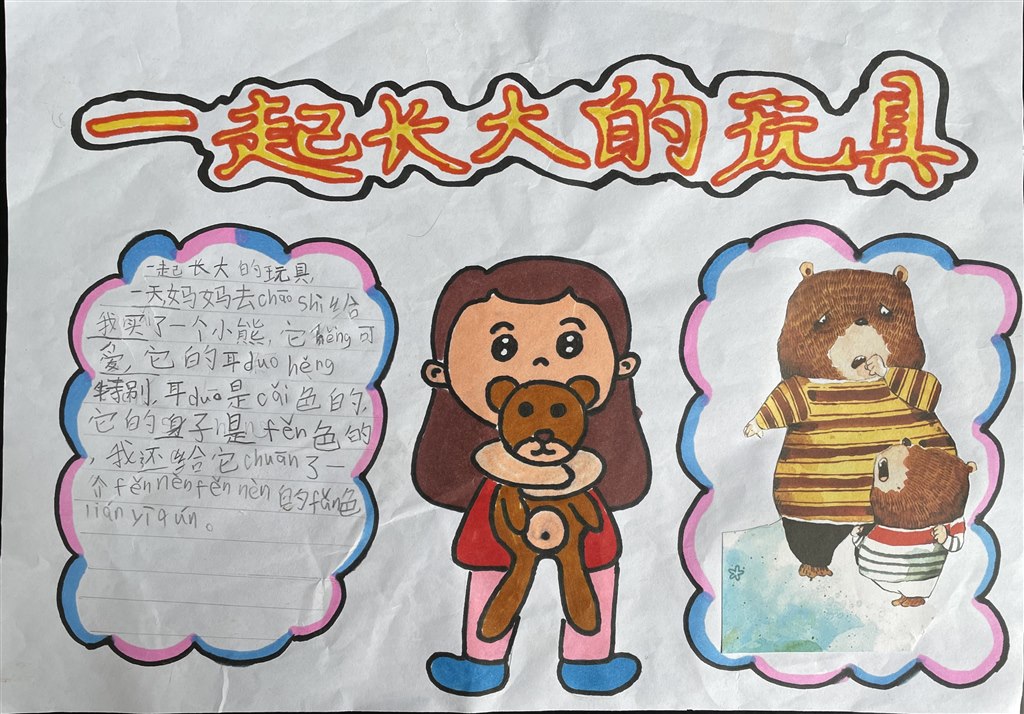 一起长大的玩具
一起长大的玩具
一天妈妈去chāo shì给
我买了一个小熊,它hěng可
爱,它的耳duo hěng
特别,耳duō是cǎi色的,
它的身子是fěn色的
,我还给它chuān了一
个fěn nèn fěn nèn 的fěn色
lián yī qún。